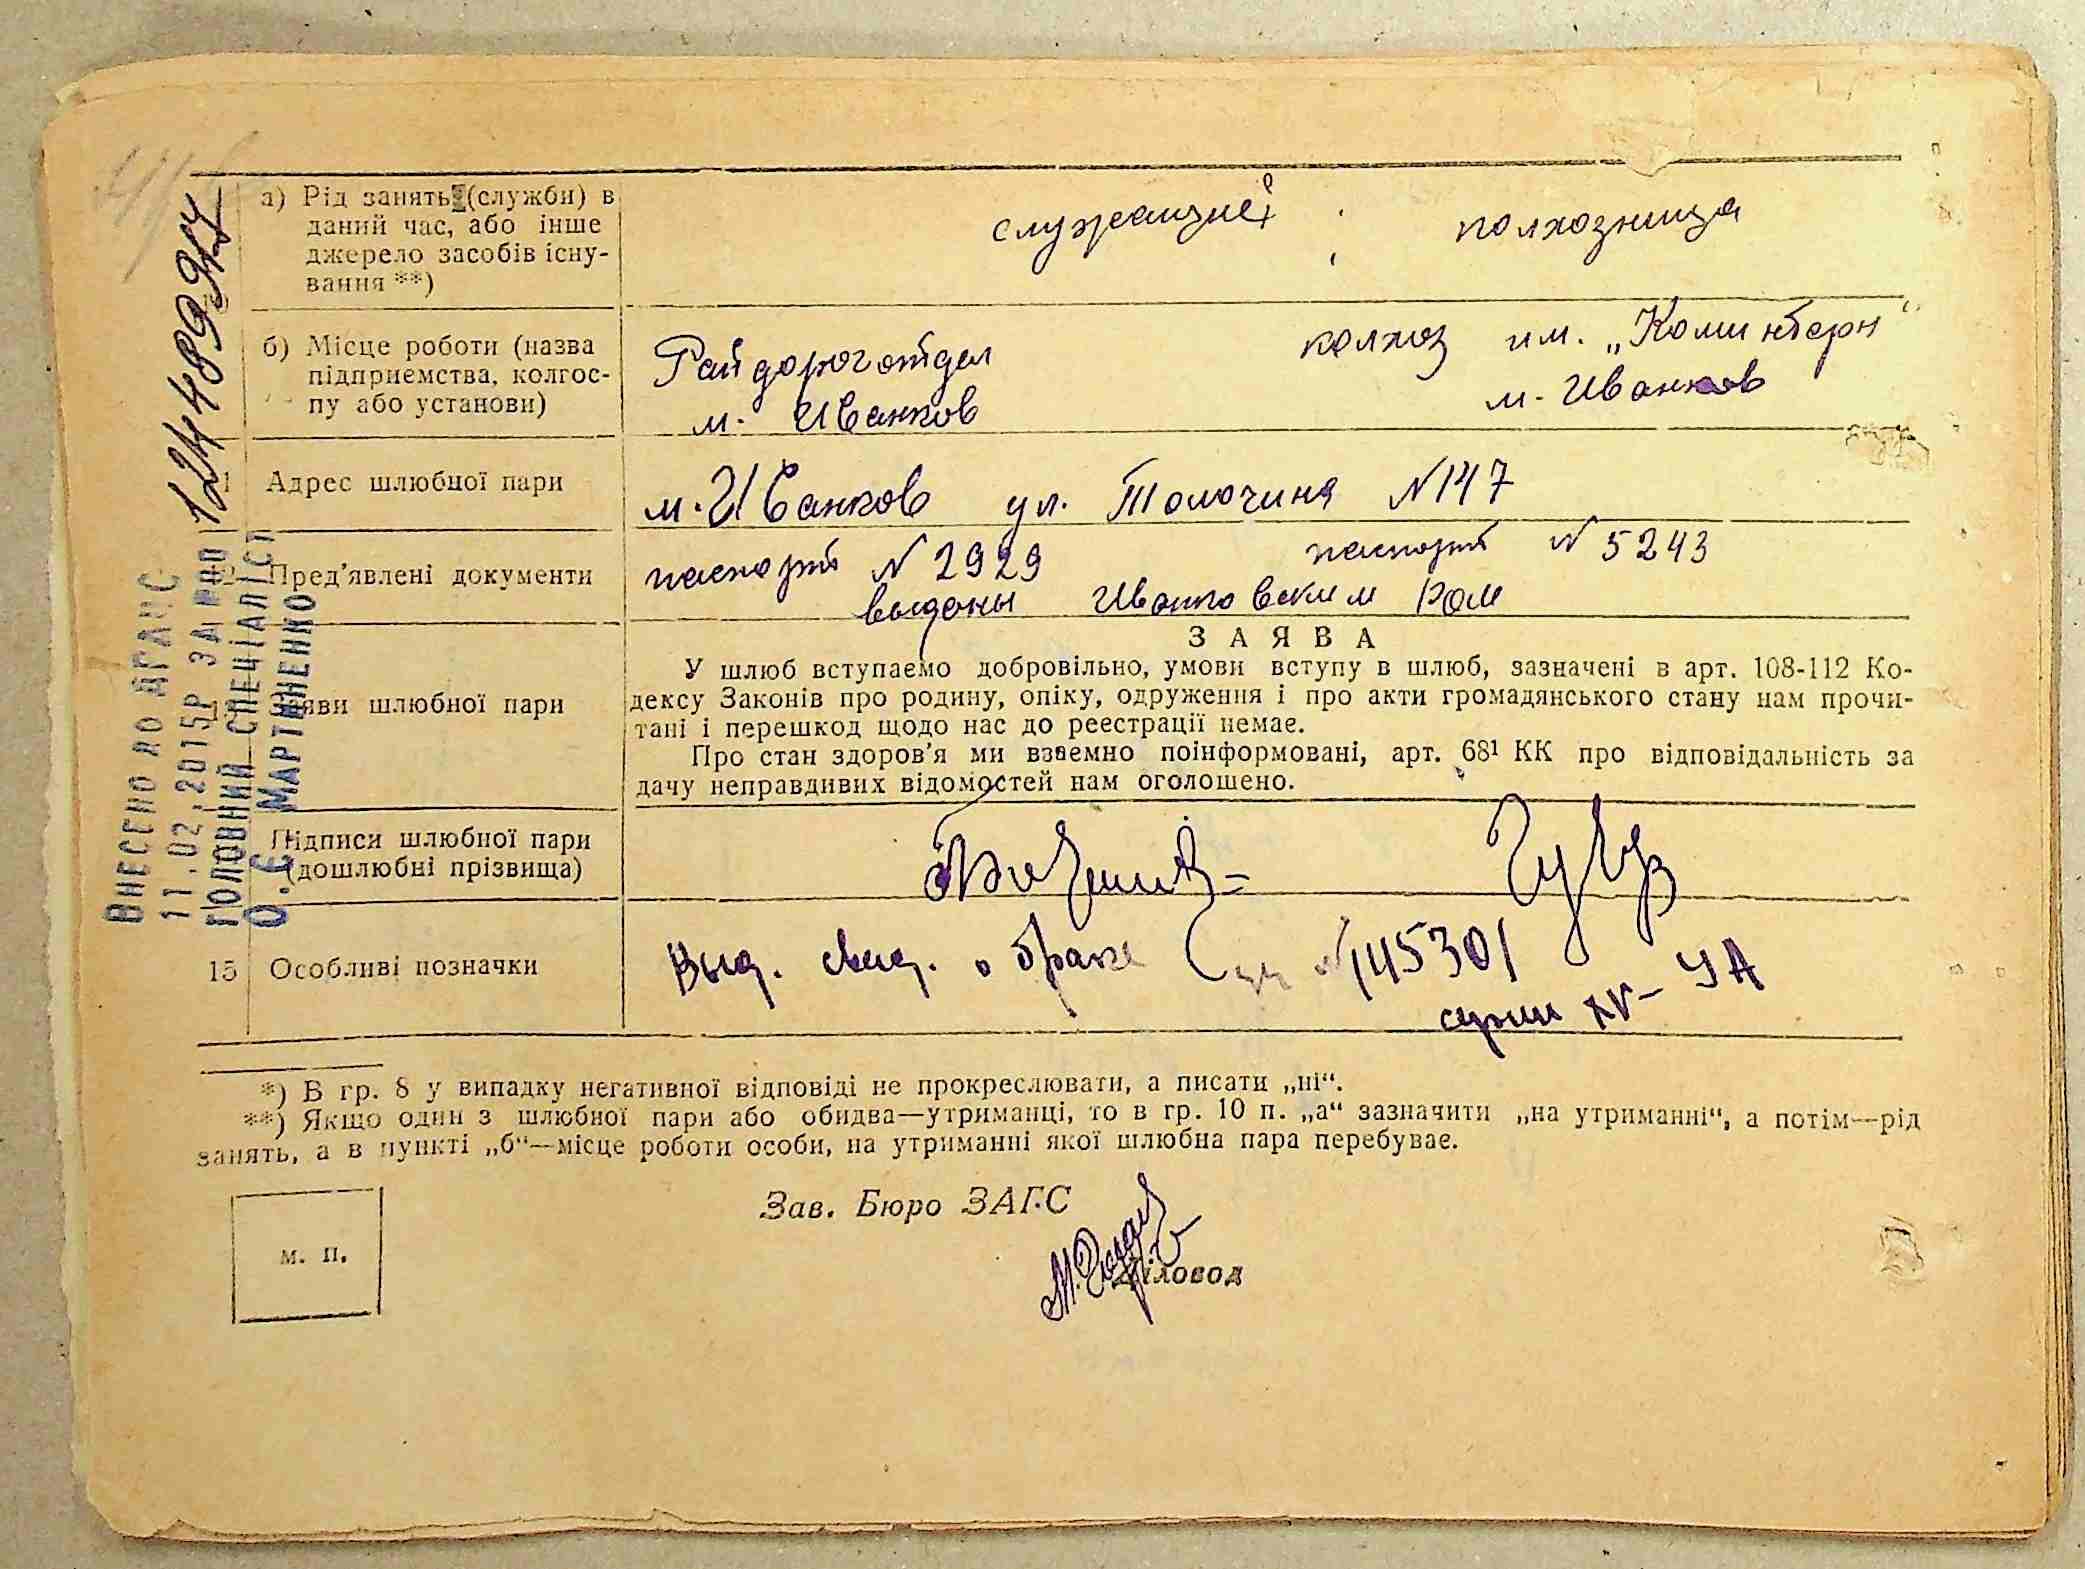 а) Рід занять (служби) в
даний час, або інше
джерело засобів існу-
вання **)
служащий
колхозница
б) Місце роботи (назва
підприємства, колгос-
пу або установи)
Райдоротдел
м. Иванков
колхоз им. „Коминтерн“
м. Иванков
Адрес шлюбної пари
м. Иванков ул. Толочина № 147
Пред'явлені документи
паспорт № 2929
паспорт № 5243
выданы Иванковским РОМ
Заяви шлюбної пари
ЗАЯВА
У шлюб вступаємо добровільно, умови вступу в шлюб, зазначені в арт. 108-112 Ко-
дексу Законів про родину, опіку, одруження і про акти громадянського стану нам прочи-
тані і перешкод щодо нас до реестрації немає.
Про стан здоров'я ми взаемно поінформовані, арт. 68¹ КК про відповідальність за
дачу неправдивих відомостей нам оголошено.
Підписи шлюбної пари
(дошлюбні прізвища)
15 Особливі позначки
Выд. свид. о браке
№ 145301
серии XV - УА
*) В гр. 8 у випадку негативної відповіді не прокреслювати, а писати „ні“.
**) Якщо один з шлюбної пари або обидва—утриманці, то в гр. 10 п. „а“ зазначити „на утриманні“, а потім—рід
занять, а в пункті „б“—місце роботи особи, на утриманні якої шлюбна пара перебуває.
Зав. Бюро ЗАГС
м. п.
Діловод
Внесено до ДРАЦС
11.02.2015р за №00124489947
головний спеціаліст
О.Є Мартиненко